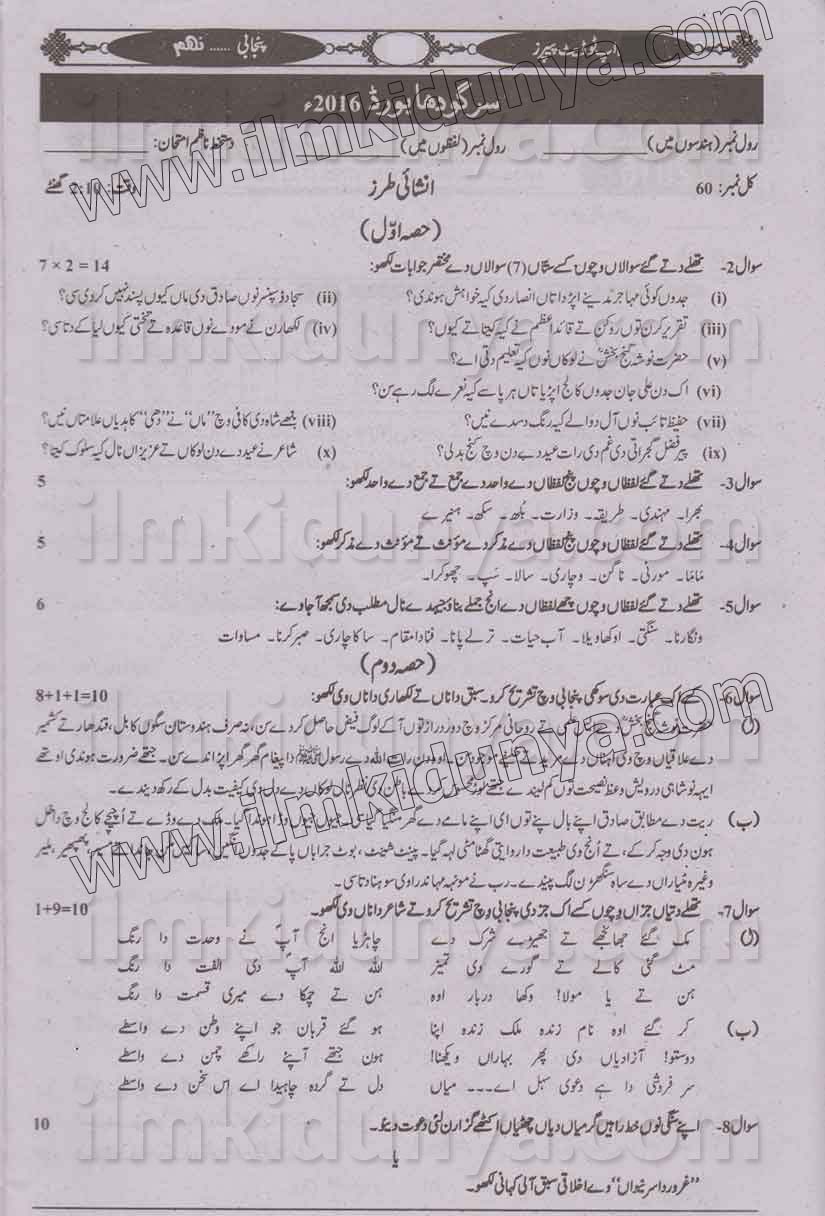 پنجابی ...... نہم
اپ ٹو ڈیٹ پیپرز
سرگودھا بورڈ 2016ء
رول نمبر (ہندسوں میں) ________ رول نمبر (لفظوں میں) ________ دستخط ناظم امتحان: ________
کل نمبر: 60 انشائی طرز وقت: 2:10 گھنٹے
(حصہ اوّل)
سوال 2- تھلے دتے گئے سوالاں وچوں کسے ستاں (7) سوالاں دے مختصر جوابات لکھو: 7 × 2 = 14
(i) جدوں کوئی مہاجر مدینے اپڑدا تاں انصار دی کیہ خواہش ہوندی؟ (ii) سجاد ڈسپنسر نوں صادق دی ماں کیوں پسند نہیں کردی سی؟
(iii) تقریر کرن توں روکن تے قائداعظم نے کیہ کیتا تے کیوں؟ (iv) لکھارن نے مودے نوں قاعدہ تے تختی کیوں لیا کے دتا سی؟
(v) حضرت نوشہ گنج بخشؒ نے لوکاں نوں کیہ تعلیم دتی اے؟
(vi) اک دن علی جان جدوں کالج اپڑیا تاں ہر پاسے کیہ نعرے لگ رہے سن؟
(vii) حفیظ تائب نوں آل دوالے کیہ رنگ دسدے نیں؟ (viii) بلھے شاہ دی کافی وچ "ماں" نے "دھی" کا ہدیاں علامتاں نیں؟
(ix) پیر فضل گجراتی دی غم دی رات عید دے دن وچ کنج بدلی؟ (x) شاعر نے عید دے دن لوکاں تے عزیزاں نال کیہ سلوک کیتا؟
سوال 3- تھلے دتے گئے لفظاں وچوں پنج لفظاں دے واحد دے جمع تے جمع دے واحد لکھو: 5
بھرا۔ مہندی۔ طریقہ۔ وزارت۔ بُھکھ۔ سکھ۔ ہنیرے
سوال 4- تھلے دتے گئے لفظاں وچوں پنج لفظاں دے مذکر دے مؤنث تے مؤنث دے مذکر لکھو: 5
ماما۔ مورنی۔ ناگن۔ وچاری۔ سالا۔ سَپ۔ چھوکرا۔
سوال 5- تھلے دتے گئے لفظاں وچوں چھے لفظاں دے انج جملے بناؤ جیہدے نال مطلب دی سمجھ آ جاوے: 6
ونگارنا۔ سنگتی۔ اوکھا ویلا۔ آب حیات۔ ترلے پانا۔ فنا دا مقام۔ ساکا چاری۔ صبر کرنا۔ مساوات
(حصہ دوم)
سوال 6- کسے اک عبارت دی سوکھی پنجابی وچ تشریح کرو۔ سبق دا ناں تے لکھاری دا ناں وی لکھو: 8+1+1=10
(ل) حضرت نوشہ گنج بخشؒ دے ایس علمی تے روحانی مرکز وچ دور درازتوں آ کے لوگ فیض حاصل کردے سن، نہ صرف ہندوستان سگوں کابل، قندھار تے کشمیر
دے علاقیاں وچ وی اُہناں دے مرید تے موجود سن۔ اوہ دن رات اللہ دے رسولﷺ دا پیغام گھر گھر اپڑاندے سن۔ جتھے ضرورت ہوندی اوتھے
ایہہ نوشاہی درویش وعظ نصیحت توں کم لیندے جتھے لوڑ محسوس کردے باطن دی نظر نال لوکاں دے دل دی کیفیت بدل کے رکھ دیندے۔
(ب) ریت دے مطابق صادق اپنے بال پنے توں ای اپنے مامے دے گھر منگیا گیا سی۔ جیوں جیوں وڈا ہوندا گیا۔ ملک دے وڈے تے اُچیچے کالج وچ داخل
ہون دی وجہ کر کے، تے اُنج وی طبیعت دا روایتی گھٹا مٹی لہہ گیا۔ پینٹ شینٹ، بوٹ جراباں پا کے جدوں مسیر، پھپھیر، ملیر
وغیرہ مٹیاراں دے ساہ سنگھڑن لگ پیندے۔ رب نے مونہہ مہاندرا وی سوہنا دتا سی۔
سوال 7- تھلے دتیاں جزاں وچوں کسے اک جز دی پنجابی وچ تشریح کرو تے شاعر دا ناں وی لکھو۔ 1+9=10
(ل) مک گئے جھانجھے تے جھیڑے شرک دے چاہڑیا انج آپؐ نے وحدت دا رنگ
مٹ گئی کالے تے گورے وی تمیز اللہ اللہ آپؐ دی الفت دا رنگ
ہن تے یا مولا! وکھا دربار اوہ ہن تے چمکا دے میری قسمت دا رنگ
(ب) کر گئے اوہ نام زندہ ملک زندہ اپنا ہو گئے قربان جو اپنے وطن دے واسطے
دوستو! آزادیاں دی پھر بہاراں ویکھنا! ہون جتھے آپنے راکھے چمن دے واسطے
سر فروشی دا ہے دعوی سہل اے۔۔۔ میاں دل تے گردہ چاہیدا اے اس سخن دے واسطے
سوال 8- اپنے سنگی نوں خط راہیں گرمیاں دیاں چھٹیاں اکٹھے گزارن لئی دعوت دیئو۔ 10
یا
"غرور دا سر نیواں" دے اخلاقی سبق آلی کہانی لکھو۔
www.ilmkidunya.com
www.ilmkidunya.com
ilmkidunya.com
ilmkidunya.com
ilmkidunya.com
ilmkidunya.com
ilmkidunya.com
ilmkidunya.com